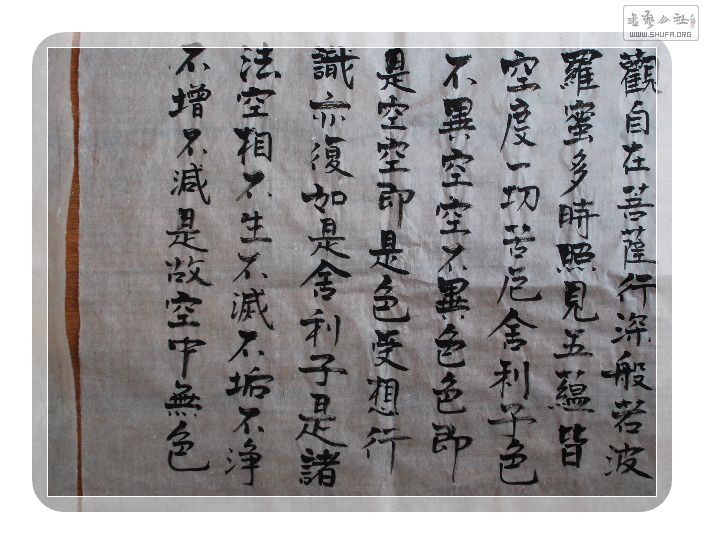 觀自在菩薩行深般若波
羅蜜多時照見五蘊皆
空度一切苦厄舍利子色
不異空空不異色色即
是空空即是色受想行
識亦復如是舍利子是諸
法空相不生不滅不垢不淨
不增不減是故空中無色
書藝公社
WWW.SHUFA.ORG